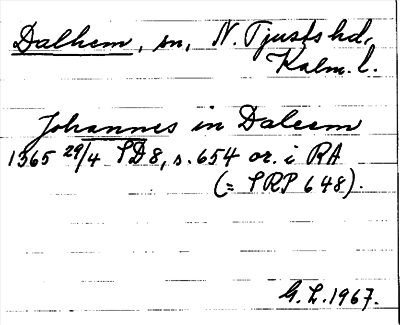 Dalhem, sn, N. Tjusts hd,
Kalm. l.
Johannes in Daleem
1365 29/4 SD 8, s. 654 or. i RA
(= SRP 648).
G. L. 1967.